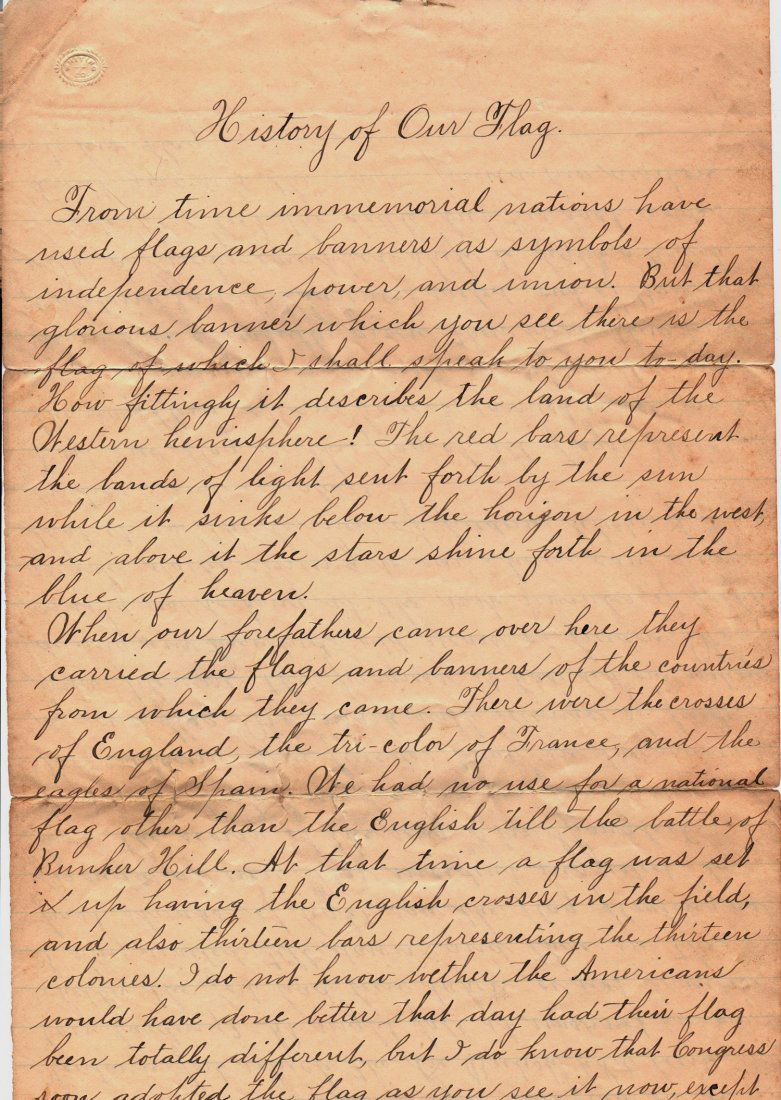 History of Our Flag.
From time immemorial nations have
used flags and banners as symbols of
independence, power, and union. But that
glorious banner which you see there is the
flag of which I shall speak to you to-day.
How fittingly it describes the land of the
Western hemisphere! The red bars represent
the bands of light sent forth by the sun
while it sinks below the horizon in the west,
and above it the stars shine forth in the
blue of heaven.
When our forefathers came over here they
carried the flags and banners of the countries
from which they came. There were the crosses
of England, the tri-color of France, and the
eagles of Spain. We had no use for a national
flag other than the English till the battle of
Bunker Hill. At that time a flag was set
up having the English crosses in the field,
and also thirteen bars representing the thirteen
colonies. I do not know wether the Americans
would have done better that day had their flag
been totally different, but I do know that Congress
soon adopted the flag as you see it now, except